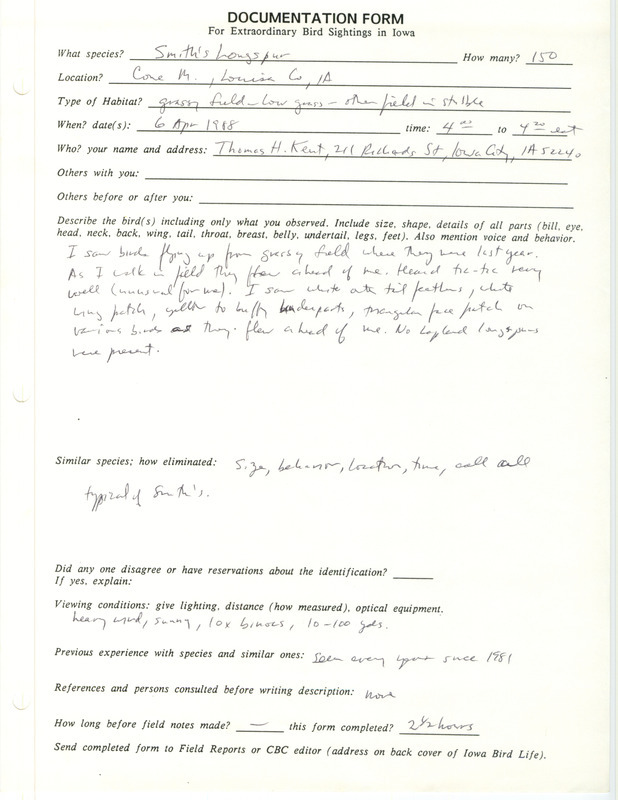 DOCUMENTATION FORM
For Extraordinary Bird Sightings in Iowa
What species? Smith's Longspur How many? 150
Location? Cone M., Louisa Co, IA
Type of Habitat? grassy field - low grass - other field in stubble
When? date(s): 6 Apr 1988 time: 4 00 to 4 20
Who? your name and address: Thomas H. Kent, 211 Richards St, Iowa City, IA 52240
Others with you:
Others before or after you:
Describe the bird(s) including only what you observed. Include size, shape, details of all parts (bill, eye,
head, neck, back, wing, tail, throat, breast, belly, undertail, legs, feet). Also mention voice and behavior.
I saw birds flying up from grassy field where they were last year.
As I walk in field they flew ahead of me. Heard tic-tic very
well (unusual for me). I saw white outer tail feathers, white
wing patch, yellow to buffy underparts, triangular face patch on
various birds as they flew ahead of me. No Lapland longspurs
were present.
Similar species; how eliminated: Size, behavior, location, time, call all
typical of Smith's.
Did any one disagree or have reservations about the identification?
If yes, explain:
Viewing conditions: give lighting, distance (how measured), optical equipment.
heavy wind, sunny, 10x binocs, 10-100 yds.
Previous experience with species and similar ones: seen every year since 1981
References and persons consulted before writing description: none
How long before field notes made? — this form completed? 2 1/2 hours
Send completed form to Field Reports or CBC editor (address on back cover of Iowa Bird Life).